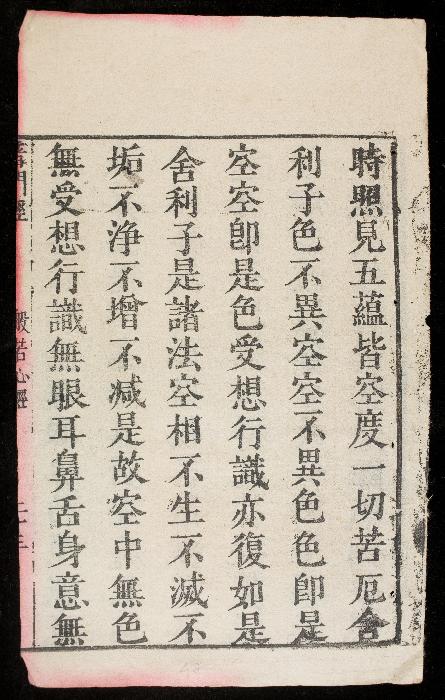 時照見五蘊皆空度一切苦厄舍
利子色不異空空不異色色卽是
空空卽是色受想行識亦復如是
舍利子是諸法空相不生不滅不
垢不净不增不减是故空中無色
無受想行識無眼耳鼻舌身意無
門經
般若心經